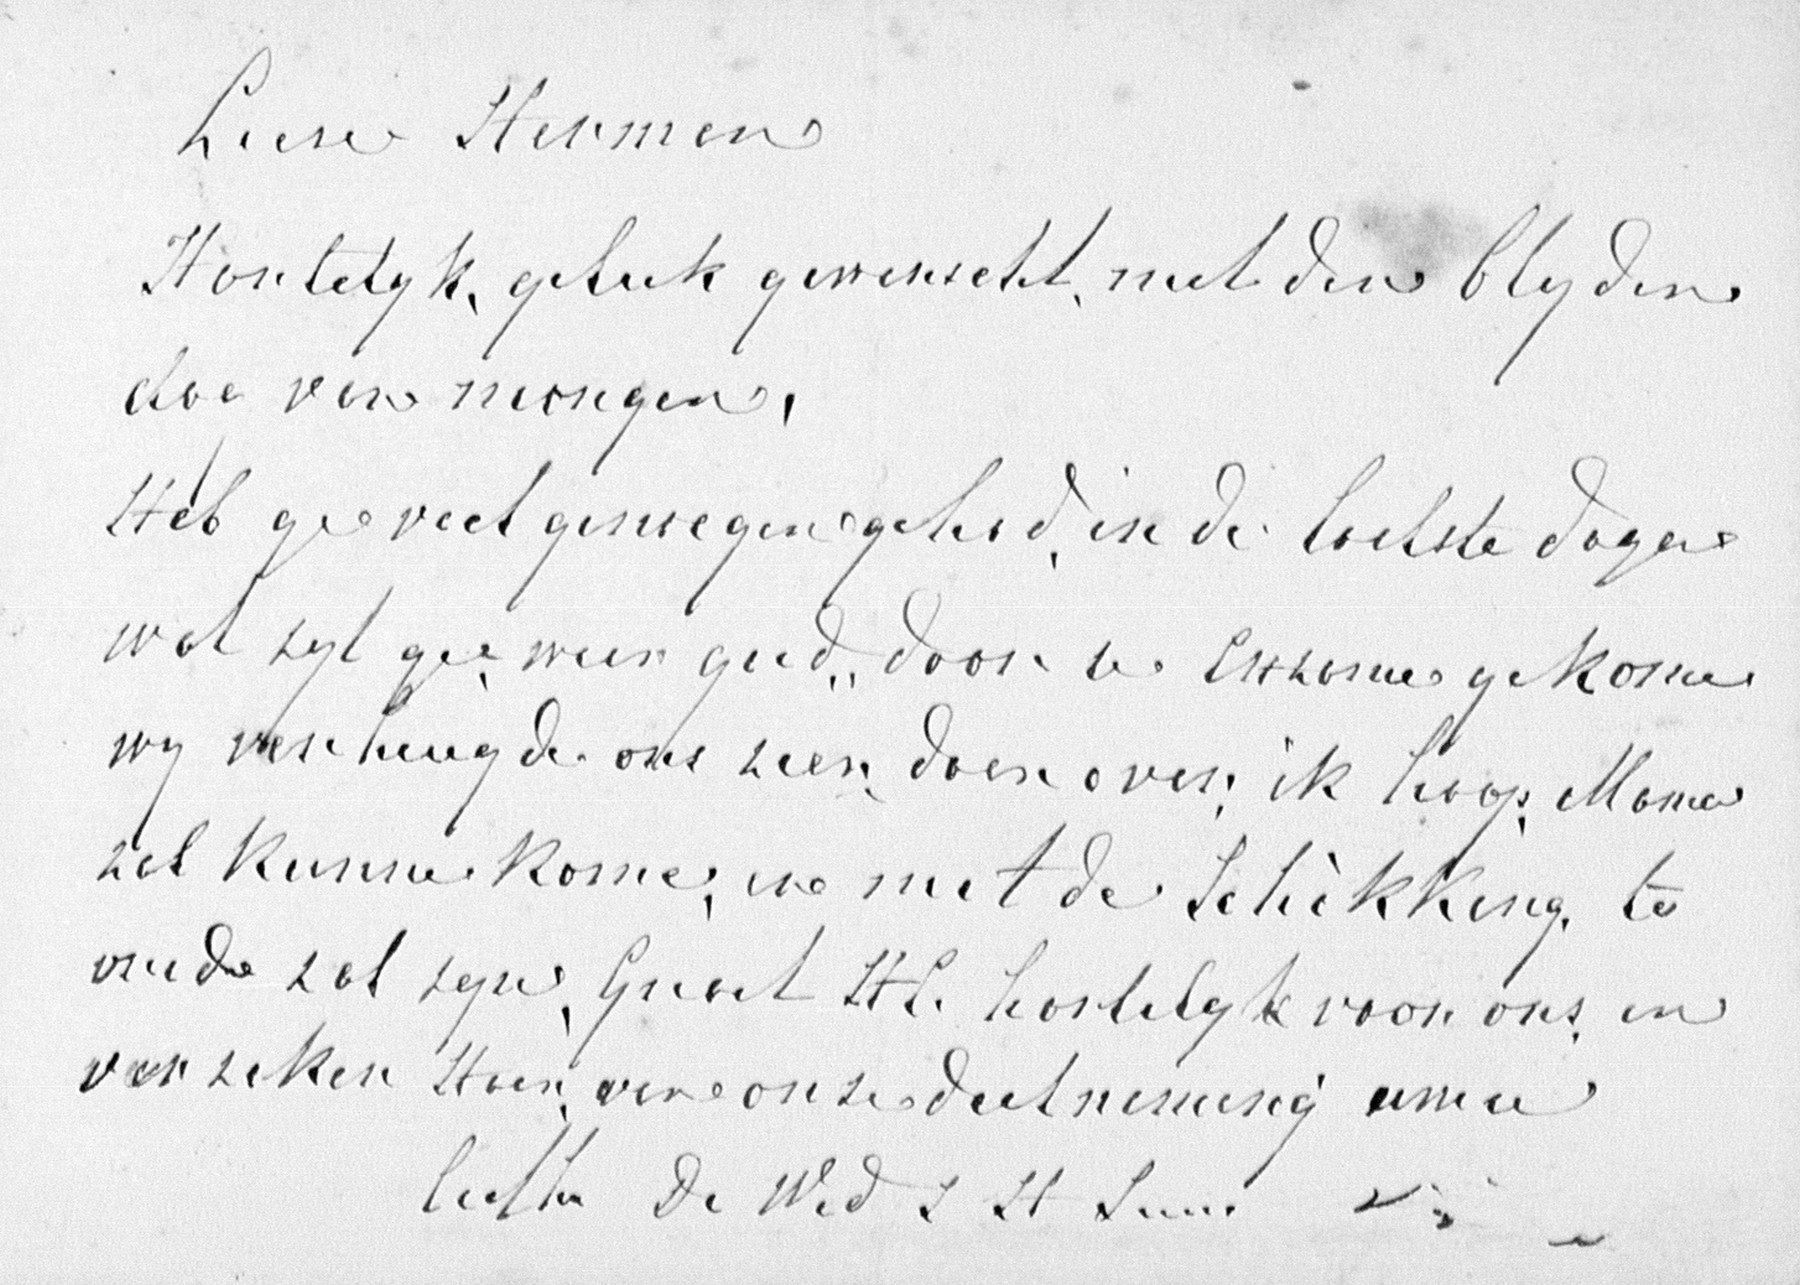 Lieve Herman
Hartelyk, geluk gewenscht, met den blyden
dag van morgen,
Heb ge veel genoegen gehad, in de laatste dagen
wat zyt ge, weer goed,, door te Examen gekome
wy verheugde ons zeer, daar over, ik hoop, Mama
zal kunne kome, en met de Schikking, te
vrede zal zyn, Groet HE. hartelyk voor ons, en
verzeker Haar, van onze deelneming uwe u
liefh De Wed S H